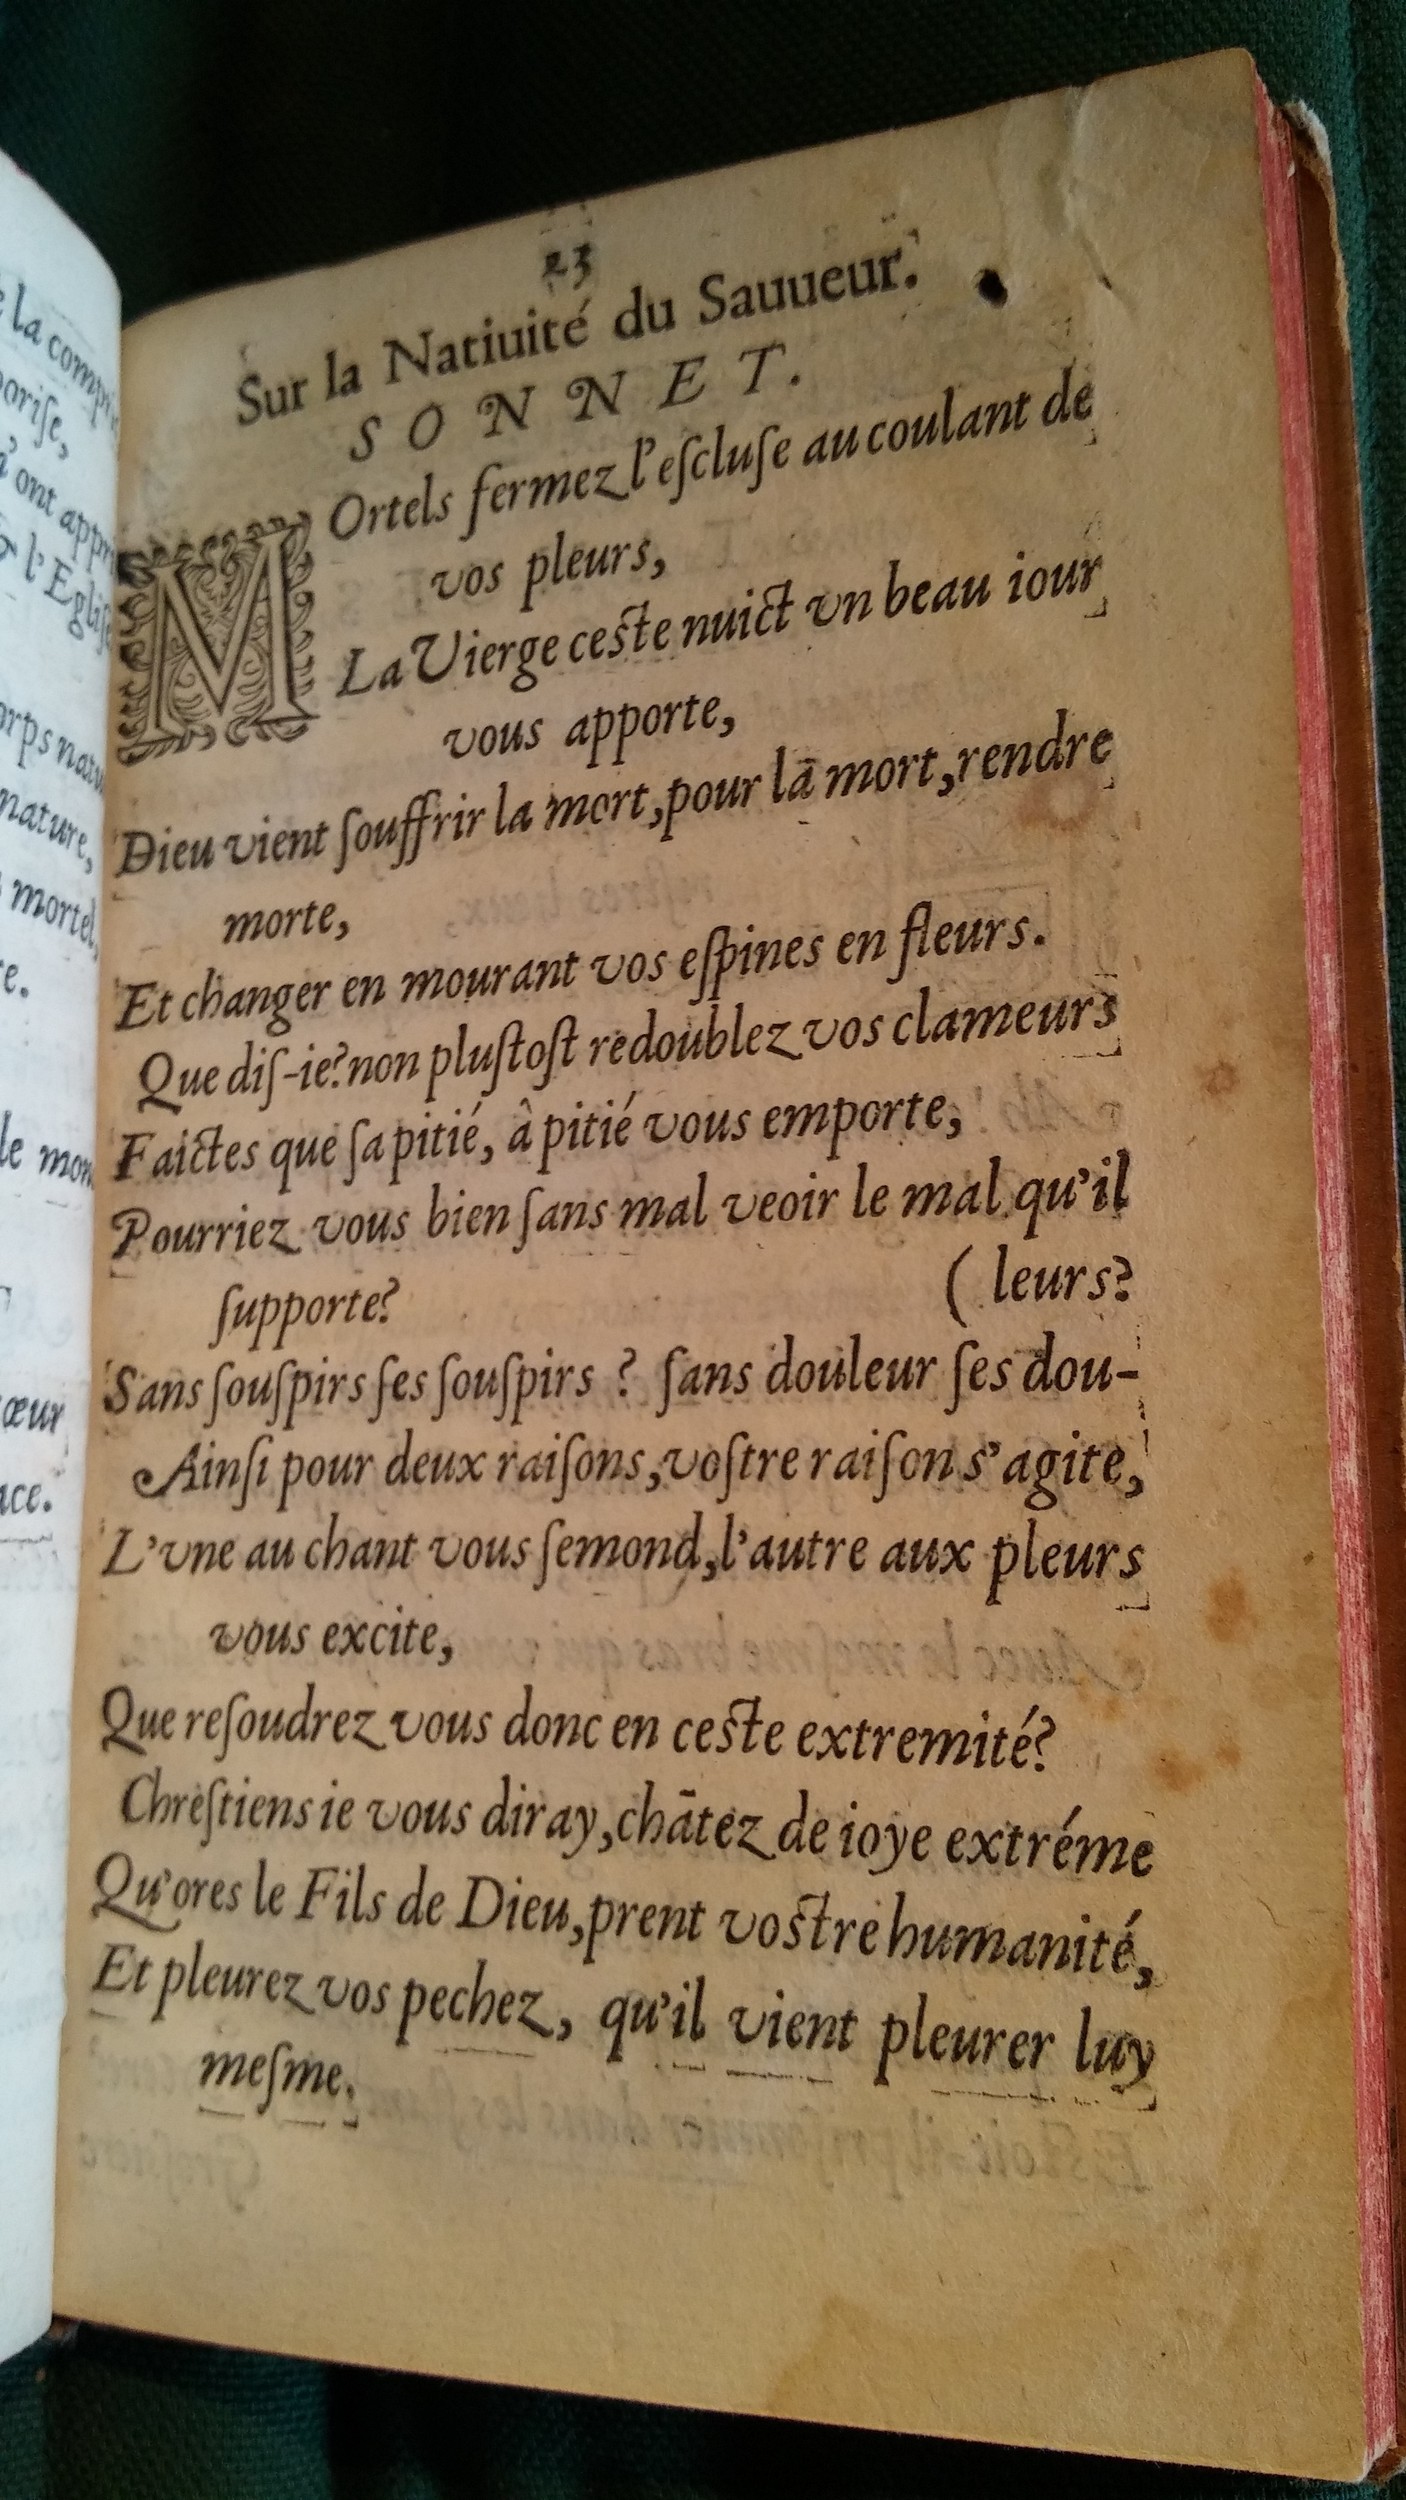 la comp
porise,
ont appr
& l'Eglise
orps natu
nature,
mortel,
re.
le mon
cœur
ace.
23
Sur la Natiuité du Sauueur.
SONNET.
MOrtels fermez l'eſcluſe au coulant de
vos pleurs,
La Vierge ceſte nuict vn beau iour
vous apporte,
Dieu vient ſouffrir la mort, pour la mort, rendre
morte,
Et changer en mourant vos eſpines en fleurs.
Que diſ-ie? non pluſtoſt redoublez vos clameurs
Faictes que ſa pitié, â pitié vous emporte,
Pourriez vous bien ſans mal veoir le mal qu'il
ſupporte? ( leurs?
Sans ſouſpirs ſes ſouſpirs ? ſans douleur ſes dou-
Ainſi pour deux raiſons, voſtre raiſon s'agite,
L'vne au chant vous ſemond, l'autre aux pleurs
vous excite,
Que reſoudrez vous donc en ceſte extremité?
Chreſtiens ie vous diray, chātez de ioye extréme
Qu'ores le Fils de Dieu, prent voſtre humanité,
Et pleurez vos pechez, qu'il vient pleurer luy
meſme.